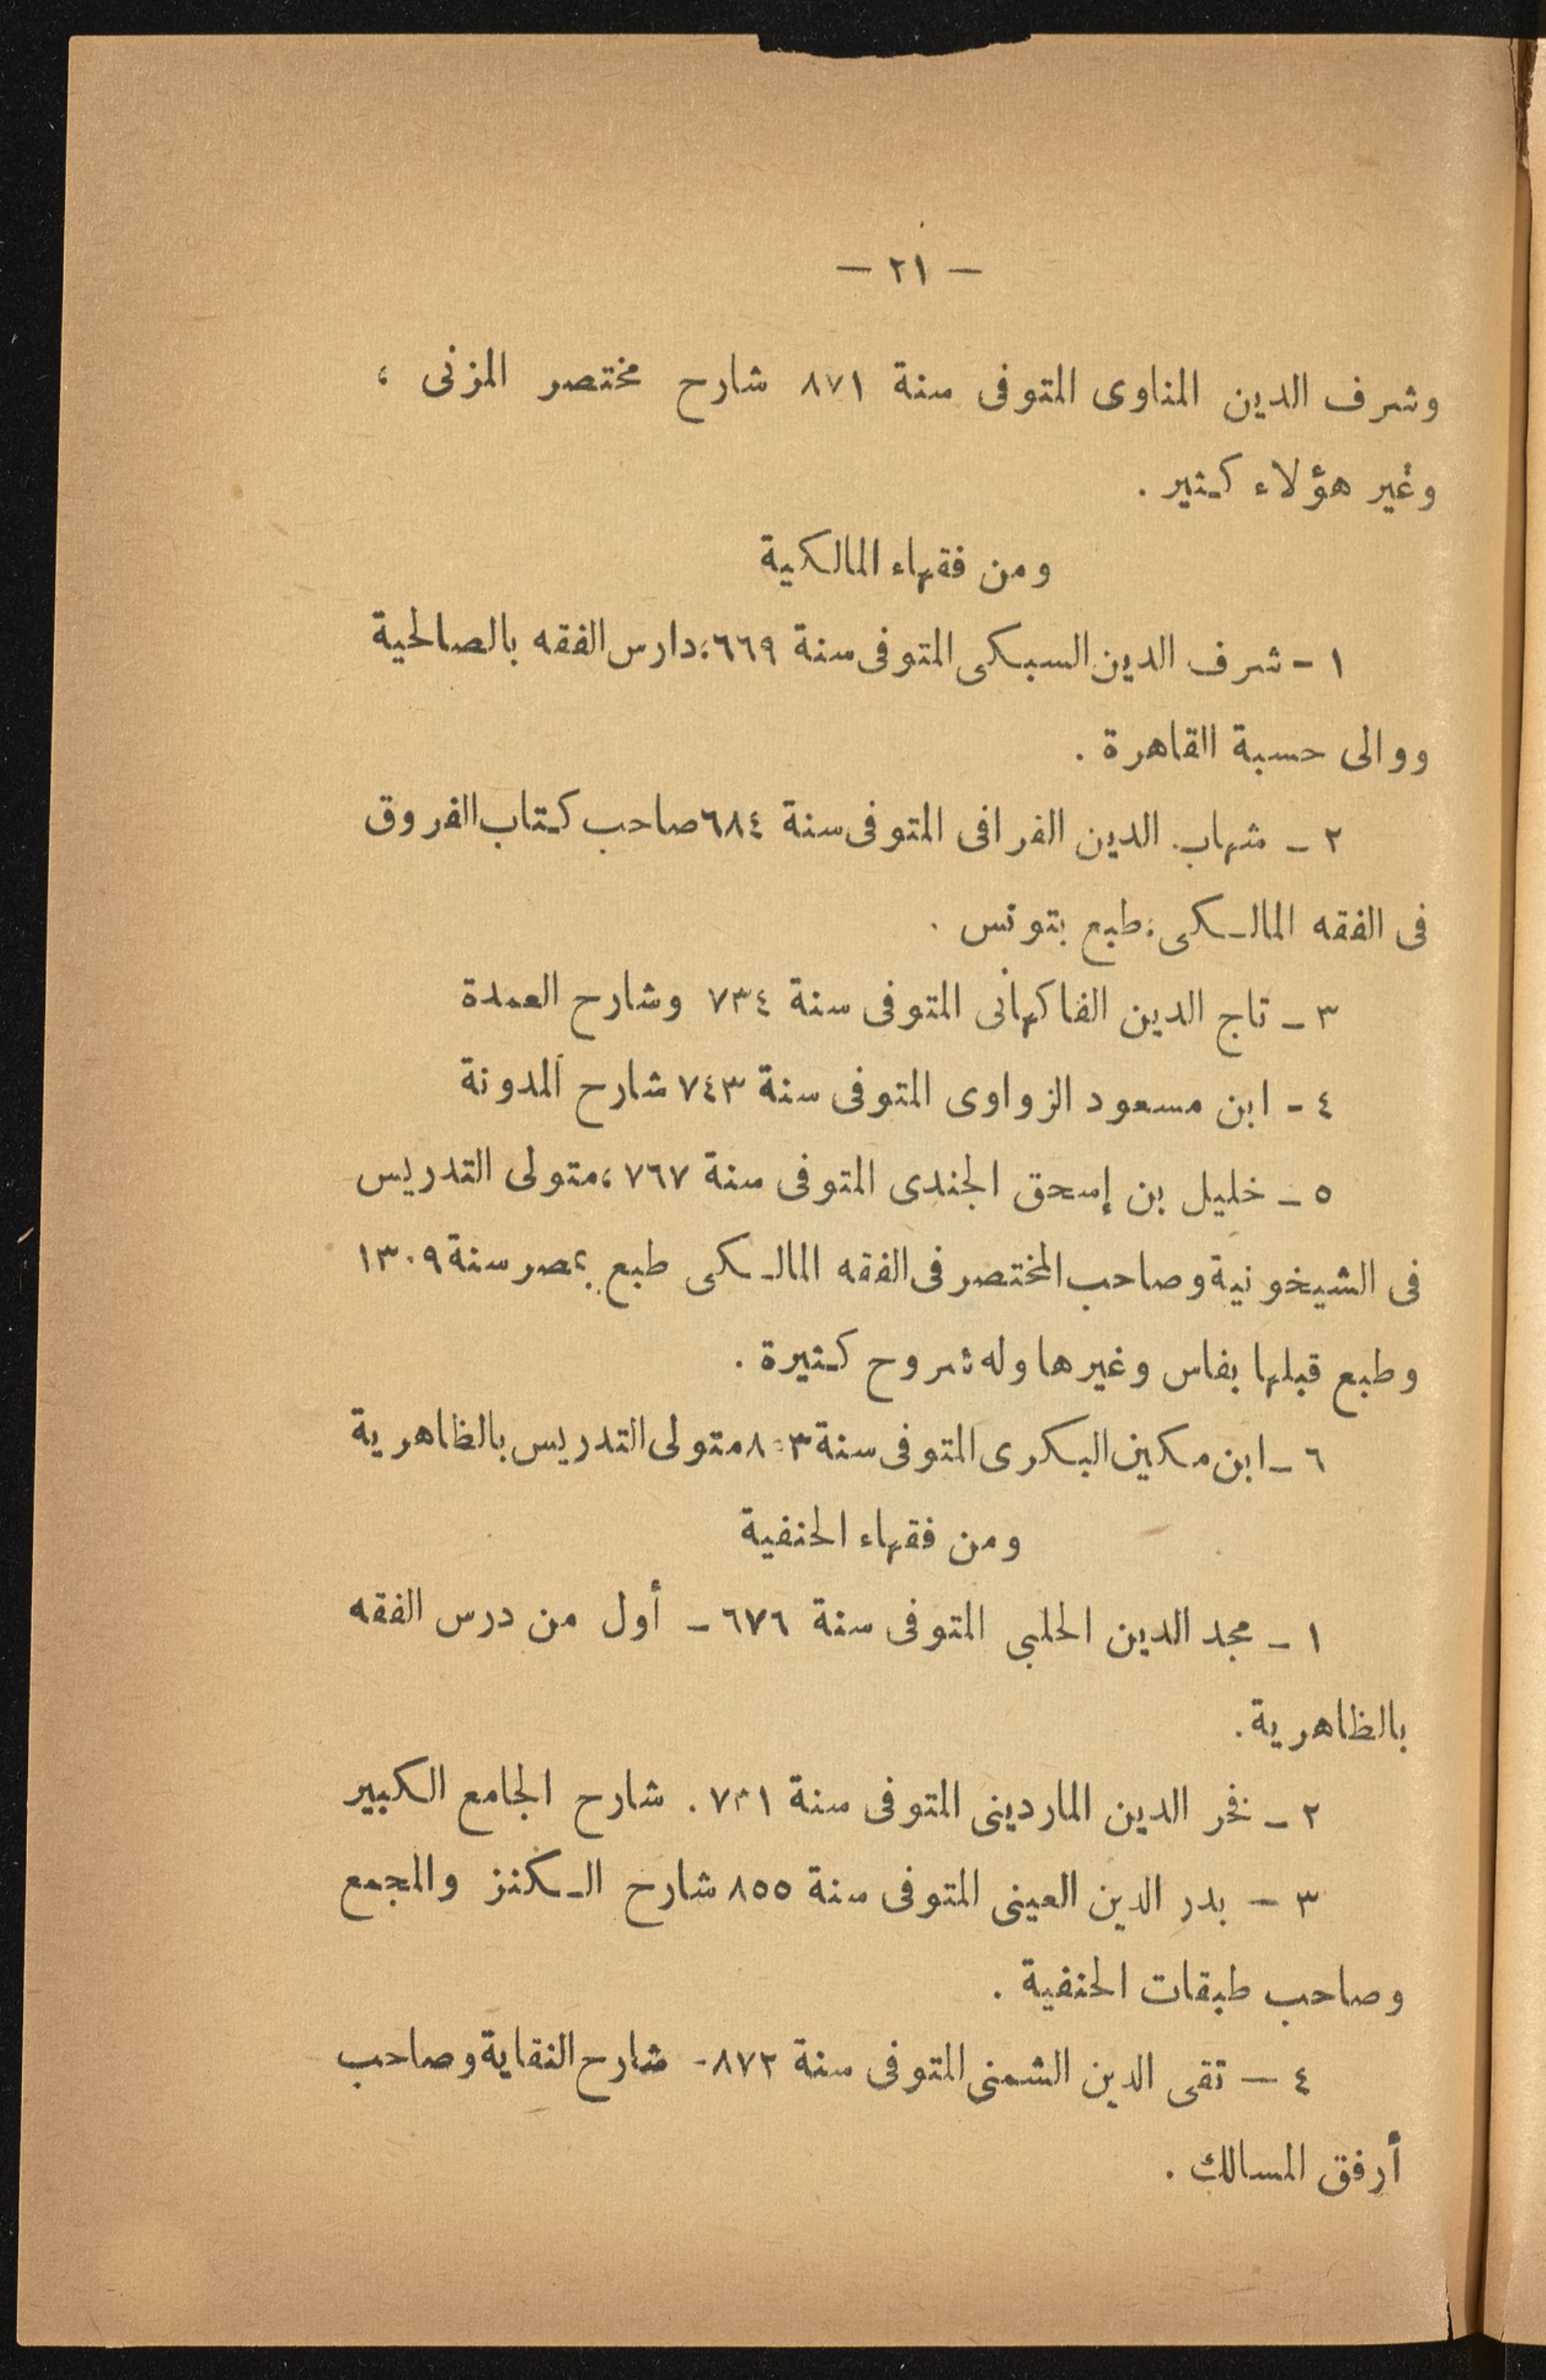 — ٢١ —
وشرف الدين المناوى المتوفى سنة ٨٧١ شارح مختصر المزنى ،
وغير هؤلاء كثير .
ومن فقهاء المالكية
١ - شرف الدين السبكى المتوفى سنة ٦٦٩، دارس الفقه بالصالحية
ووالى حسبة القاهرة .
٢ - شهاب الدين القرافى المتوفى سنة ٦٨٤ صاحب كتاب الفروق
فى الفقه المالكى، طبع بتونس .
٣ - تاج الدين الفاكهانى المتوفى سنة ٧٣٤ وشارح العمدة
٤ - ابن مسعود الزواوى المتوفى سنة ٧٤٣ شارح المدونة
٥ - خليل بن إسحق الجندى المتوفى سنة ٧٦٧، متولى التدريس
فى الشيخونية وصاحب المختصر فى الفقه المالكى طبع بمصر سنة ١٣٠٩
وطبع قبلها بفاس وغيرها وله شروح كثيرة .
٦ - ابن مكين البكرى المتوفى سنة متولى التدريس بالظاهرية
ومن فقهاء الحنفية
١ - مجد الدين الحلبى المتوفى سنة ٦٧٦ - أول من درس الفقه
بالظاهرية .
٢ - فخر الدين الماردينى المتوفى سنة ٧٣١ . شارح الجامع الكبير
٣ — بدر الدين العينى المتوفى سنة ٨٥٥ شارح الكنز والمجمع
وصاحب طبقات الحنفية .
٤ — تقى الدين الشمنى المتوفى سنة ٨٧٢ - شارح النقاية وصاحب
أرفق المسالك .